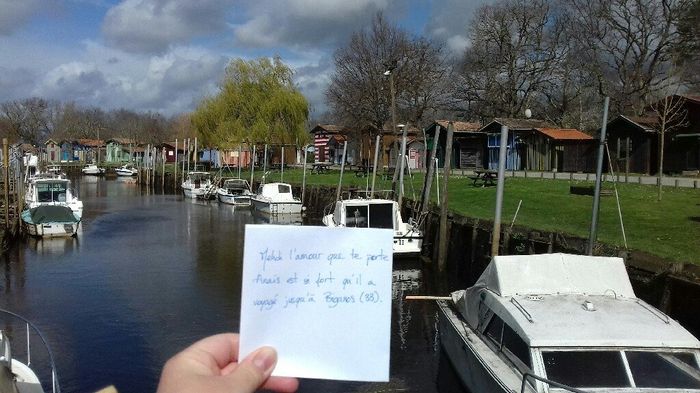 Mehdi l'amour que te porte
Anais est si fort qu'il a
voyagé jusqu'à Biganos (33).